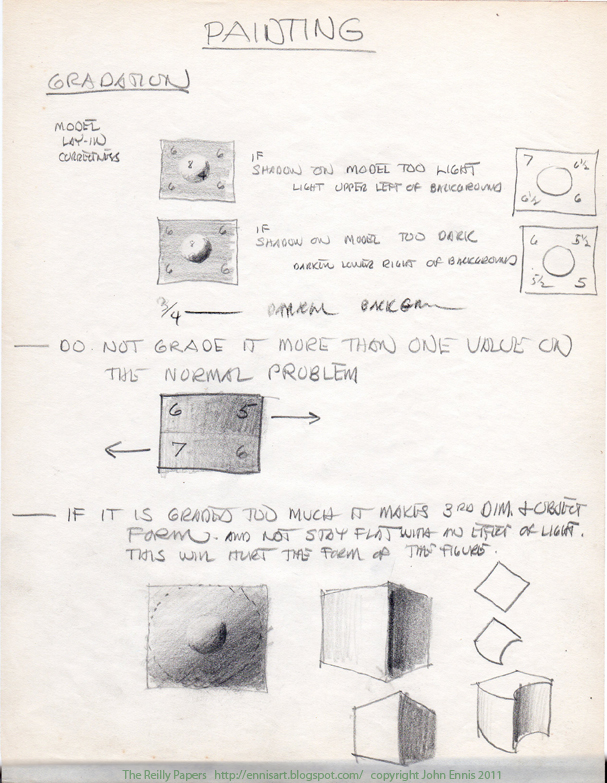 PAINTING
GRADATION
MODEL
LAY-IN
CORRECTNESS
6 6
8
4
6 6
IF
SHADOW ON MODEL TOO LIGHT
LIGHT UPPER LEFT OF BACKGROUND
7 6½
6½ 6
6 6
8
6 6
IF
SHADOW ON MODEL TOO DARK
DARKEN LOWER RIGHT OF BACKGROUND
6 5½
5½ 5
3/4 — DARKEN
— DO NOT GRADE IT MORE THAN ONE VALUE ON
THE NORMAL PROBLEM
6 5
7 6
— IF IT IS GRADED TOO MUCH IT MAKES 3RD DIM. & OBJECT
FORM. AND NOT STAY FLAT WITH AN EFFECT OF LIGHT.
THIS WILL HURT THE FORM OF THE FIGURE.
The Reilly Papers http://ennisart.blogspot.com/ copyright John Ennis 2011